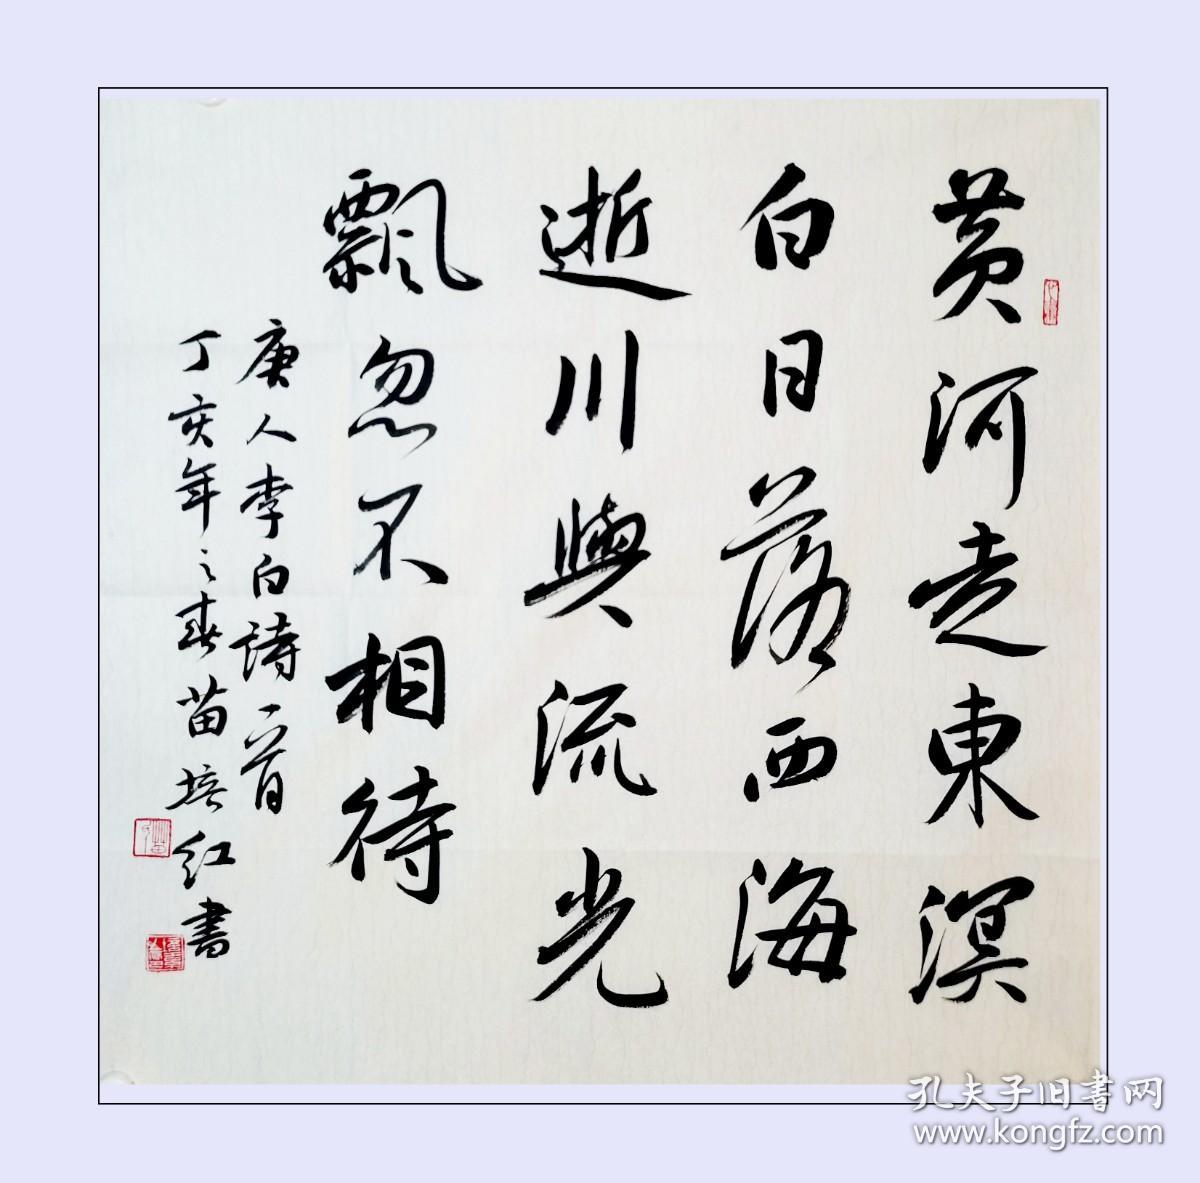 黄河走東溟
白日落西海
逝川與流光
飄忽不相待
唐人李白詩一首
丁亥年之春苗培红書
孔夫子旧書网
www.kongfz.com